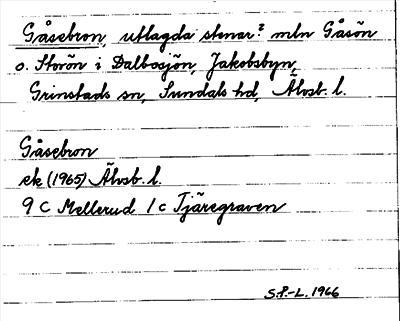 Gåsebron, utlagda stenar? mln Gåsön
o. Storön i Dalbosjön, Jakobsbyn,
Grinstads sn, Sundals hd, Älvsb. l.
Gåsebron
ek (1965) Älvsb. l.
9 C Mellerud 1 c Tjäregraven
S.P.-L. 1966